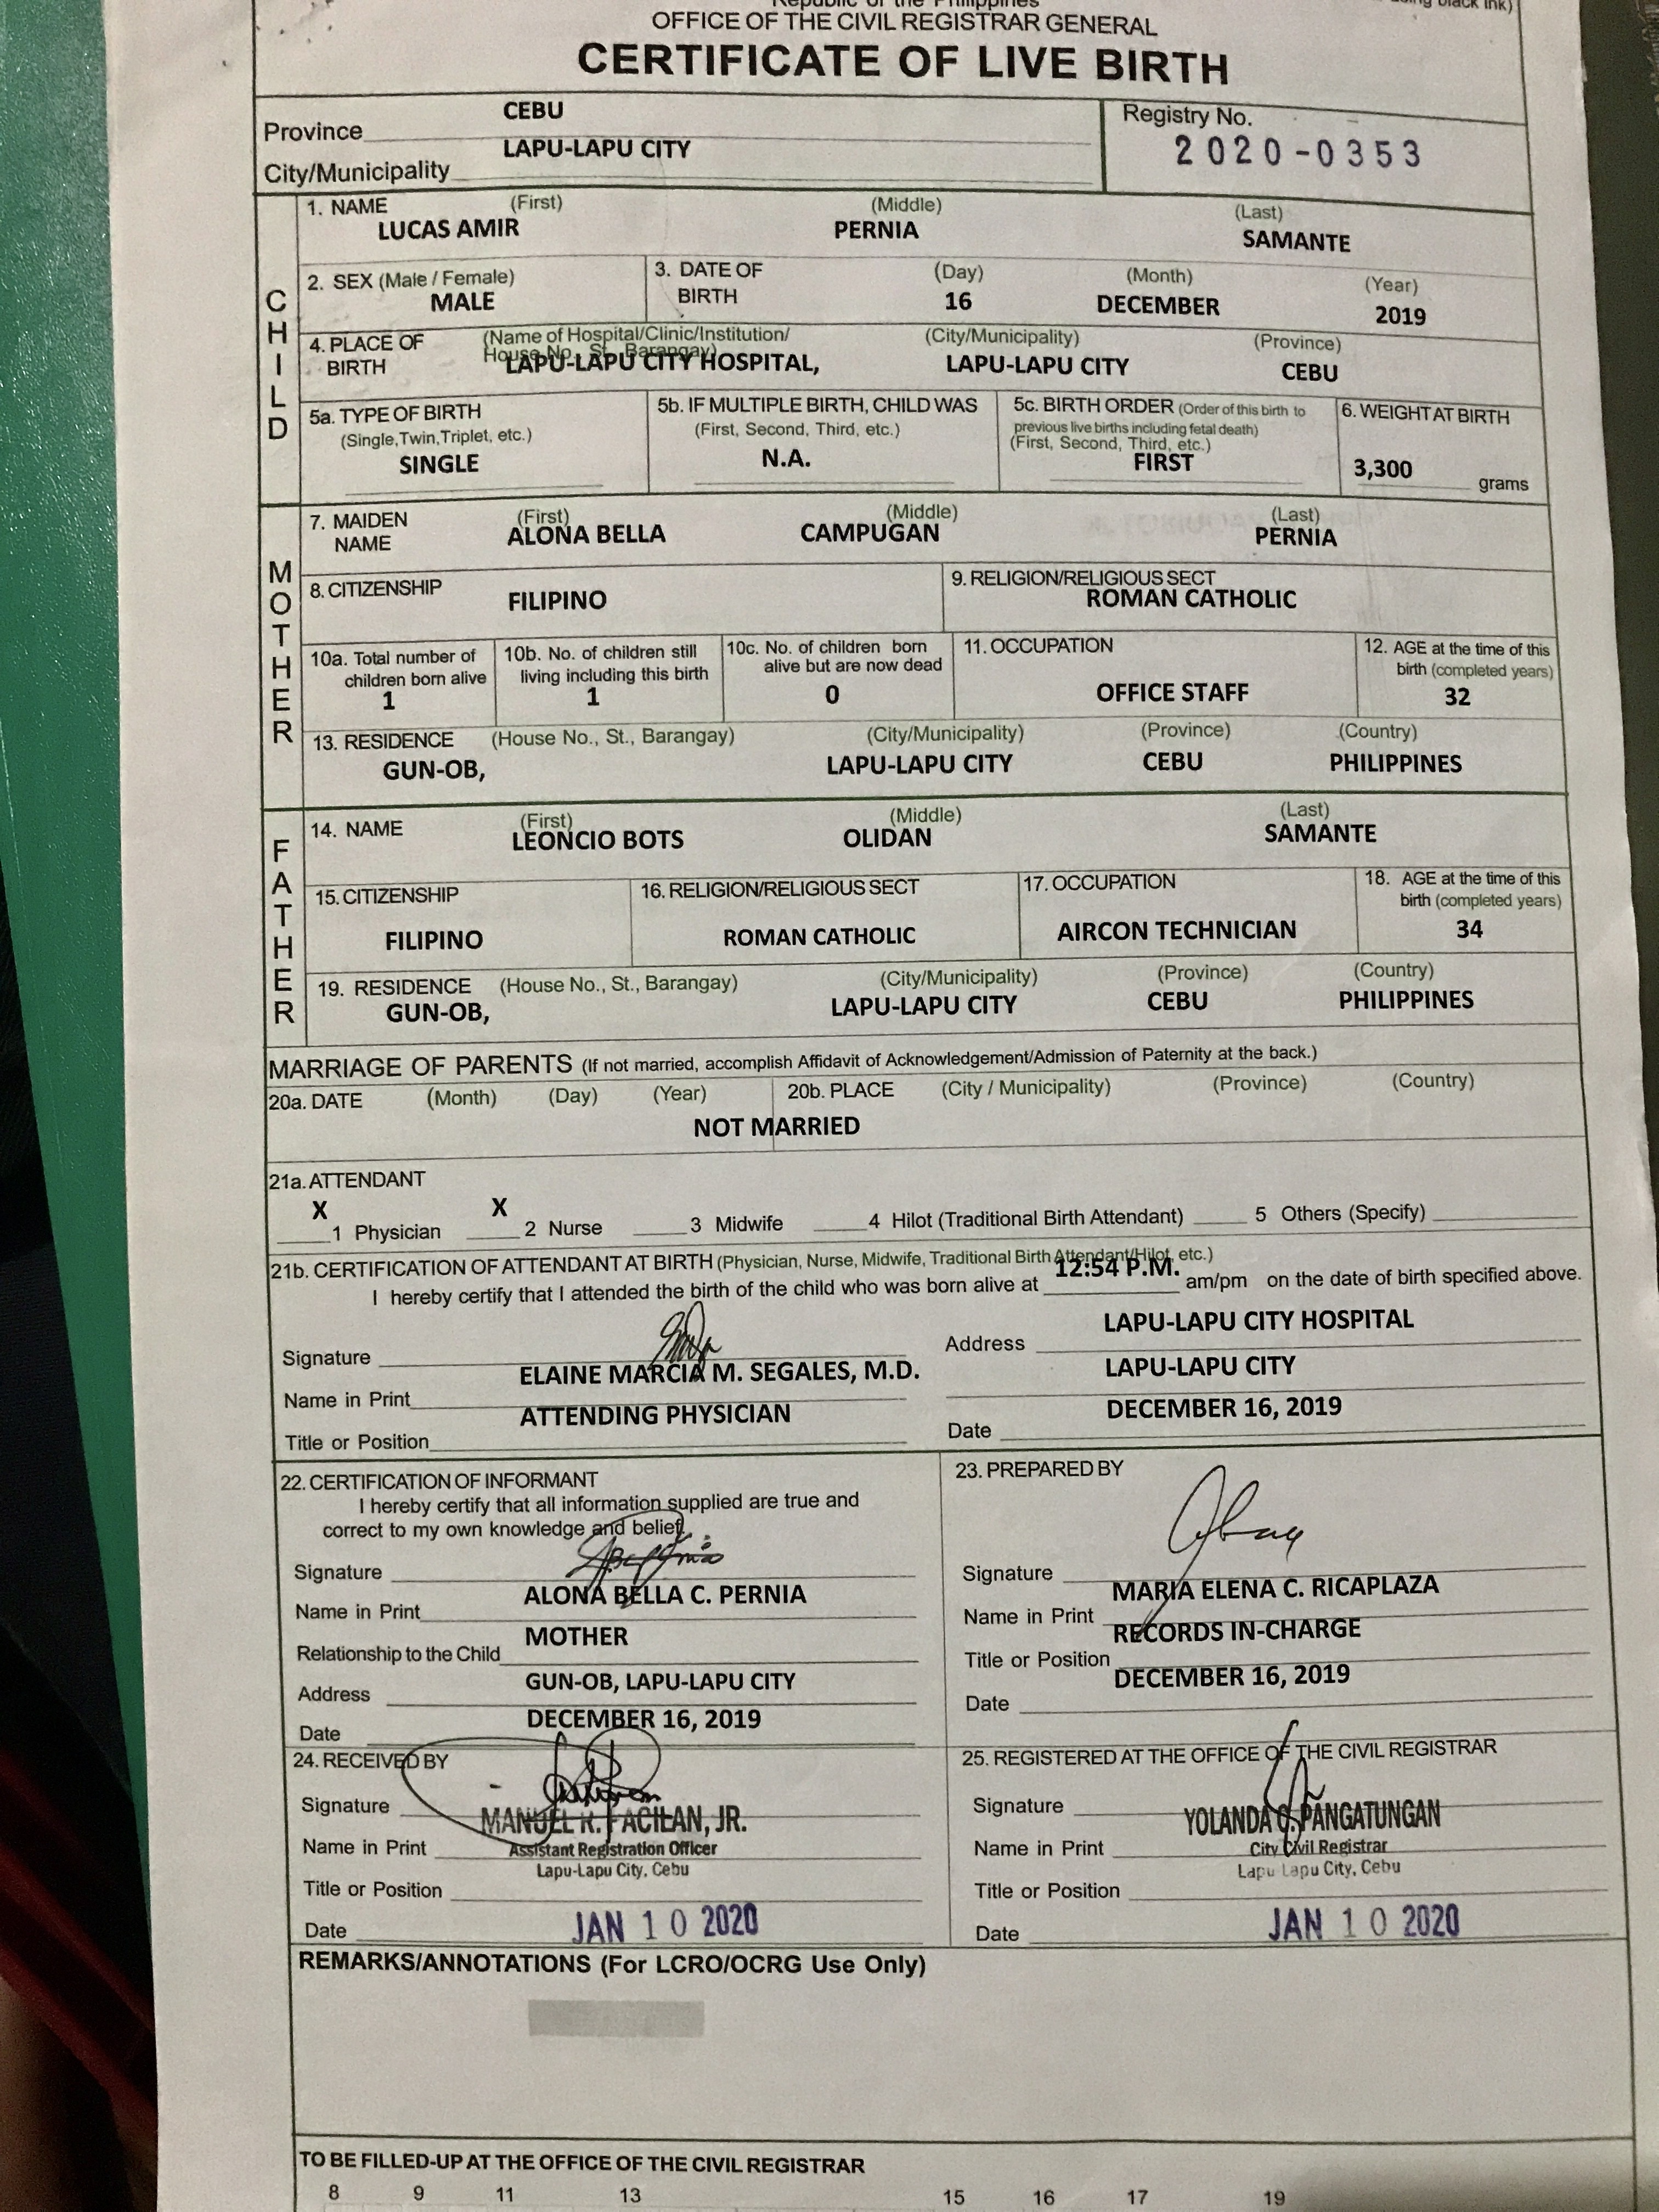 Republic of the Philippines
ing black ink)
OFFICE OF THE CIVIL REGISTRAR GENERAL
CERTIFICATE OF LIVE BIRTH
Province CEBU
City/Municipality LAPU-LAPU CITY
Registry No.
2020-0353
CHILD
1. NAME (First) (Middle) (Last)
LUCAS AMIR PERNIA SAMANTE
2. SEX (Male / Female)
MALE
3. DATE OF BIRTH (Day) (Month) (Year)
16 DECEMBER 2019
4. PLACE OF BIRTH (Name of Hospital/Clinic/Institution/ House No., St., Barangay) (City/Municipality) (Province)
LAPU-LAPU CITY HOSPITAL, LAPU-LAPU CITY CEBU
5a. TYPE OF BIRTH
(Single,Twin,Triplet, etc.)
SINGLE
5b. IF MULTIPLE BIRTH, CHILD WAS
(First, Second, Third, etc.)
N.A.
5c. BIRTH ORDER (Order of this birth to
previous live births including fetal death)
(First, Second, Third, etc.)
FIRST
6. WEIGHT AT BIRTH
3,300 grams
MOTHER
7. MAIDEN NAME (First) (Middle) (Last)
ALONA BELLA CAMPUGAN PERNIA
8. CITIZENSHIP
FILIPINO
9. RELIGION/RELIGIOUS SECT
ROMAN CATHOLIC
10a. Total number of
children born alive
1
10b. No. of children still
living including this birth
1
10c. No. of children born
alive but are now dead
0
11. OCCUPATION
OFFICE STAFF
12. AGE at the time of this
birth (completed years)
32
13. RESIDENCE (House No., St., Barangay) (City/Municipality) (Province) (Country)
GUN-OB, LAPU-LAPU CITY CEBU PHILIPPINES
FATHER
14. NAME (First) (Middle) (Last)
LEONCIO BOTS OLIDAN SAMANTE
15. CITIZENSHIP
FILIPINO
16. RELIGION/RELIGIOUS SECT
ROMAN CATHOLIC
17. OCCUPATION
AIRCON TECHNICIAN
18. AGE at the time of this
birth (completed years)
34
19. RESIDENCE (House No., St., Barangay) (City/Municipality) (Province) (Country)
GUN-OB, LAPU-LAPU CITY CEBU PHILIPPINES
MARRIAGE OF PARENTS (If not married, accomplish Affidavit of Acknowledgement/Admission of Paternity at the back.)
20a. DATE (Month) (Day) (Year) 20b. PLACE (City / Municipality) (Province) (Country)
NOT MARRIED
21a. ATTENDANT
X X
1 Physician 2 Nurse 3 Midwife 4 Hilot (Traditional Birth Attendant) 5 Others (Specify)
21b. CERTIFICATION OF ATTENDANT AT BIRTH (Physician, Nurse, Midwife, Traditional Birth Attendant/Hilot, etc.)
I hereby certify that I attended the birth of the child who was born alive at 12:54 P.M. am/pm on the date of birth specified above.
Signature
Name in Print ELAINE MARCIA M. SEGALES, M.D.
Title or Position ATTENDING PHYSICIAN
Address LAPU-LAPU CITY HOSPITAL
LAPU-LAPU CITY
Date DECEMBER 16, 2019
22. CERTIFICATION OF INFORMANT
I hereby certify that all information supplied are true and
correct to my own knowledge and belief.
Signature
Name in Print ALONA BELLA C. PERNIA
Relationship to the Child MOTHER
Address GUN-OB, LAPU-LAPU CITY
Date DECEMBER 16, 2019
23. PREPARED BY
Signature
Name in Print MARIA ELENA C. RICAPLAZA
Title or Position RECORDS IN-CHARGE
Date DECEMBER 16, 2019
24. RECEIVED BY
Signature
MANUEL R. FACILAN, JR.
Name in Print Assistant Registration Officer
Lapu-Lapu City, Cebu
Title or Position
Date JAN 10 2020
25. REGISTERED AT THE OFFICE OF THE CIVIL REGISTRAR
Signature
YOLANDA PANGATUNGAN
Name in Print City Civil Registrar
Lapu Lapu City, Cebu
Title or Position
Date JAN 10 2020
REMARKS/ANNOTATIONS (For LCRO/OCRG Use Only)
TO BE FILLED-UP AT THE OFFICE OF THE CIVIL REGISTRAR
8 9 11 13 15 16 17 19